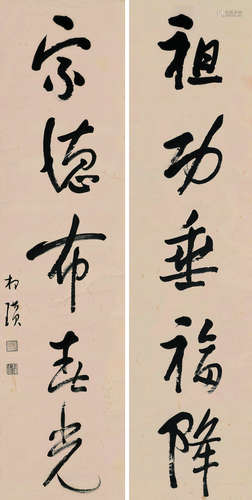 祖功垂福降
宗德布春光